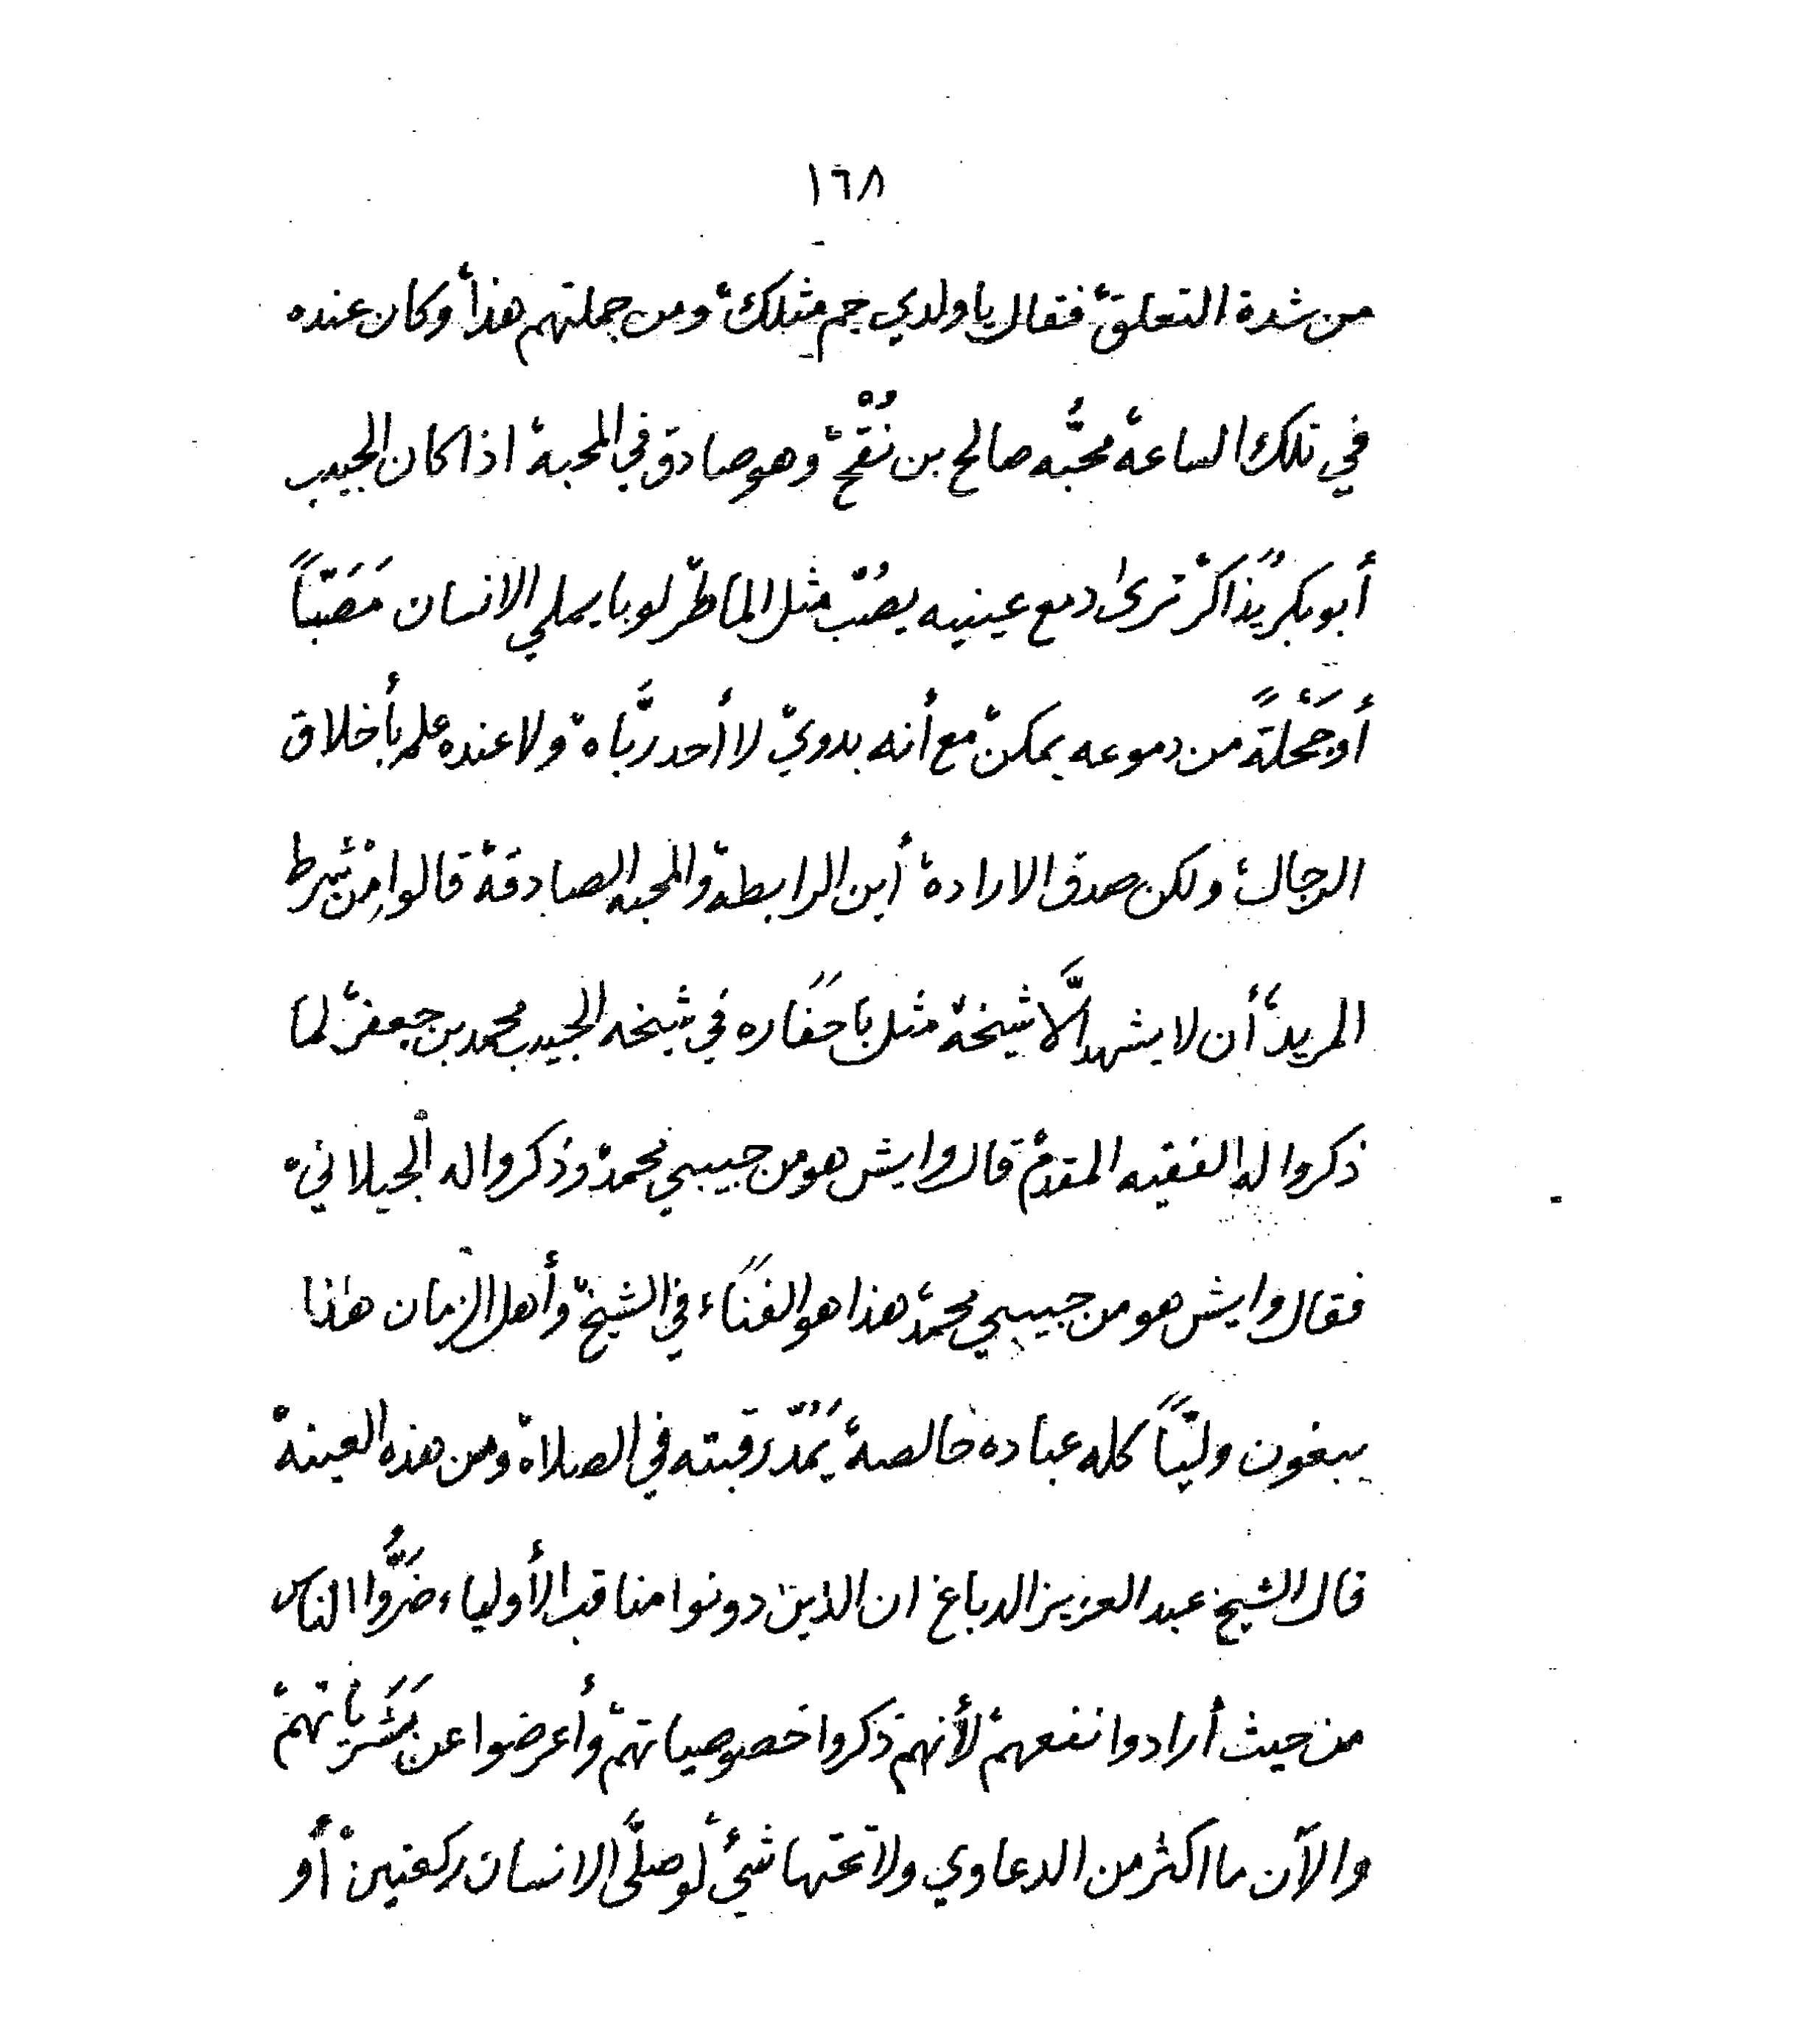 ١٦٨
من شدة التعلق، فقال يا ولدي جم مثلك، ومن جملتهم هذا، وكان عنده
في تلك الساعة محبُّه صالح بن نُقْح، وهو صادق في المحبة، اذا كان الحبيب
أبوبكر يُذاكر، ترى دمع عينيه يصُبّ مثل الماطر، لو با يملي الانسان مَصَبّاً
أو جَحْلةً من دموعه يمكن، مع أنه بدوي، لا أحد ربَّاه، ولا عنده علم بأخلاق
الرجال، ولكن صدق الارادة، أين الرابطة، والمحبه الصادقة، قالوا مِن شرط
المريد، أن لا يشهد الَّا شيخه، مثل باحَفَاره في شيخه الحبيب محمد بن جعفر، لما
ذكروا له الفقيه المقدم، قال وايش هو من حبيبي محمد، وذكروا له الجيلاني،
فقال وايش هو من حبيبي محمد، هذا هو الفَنَاء في الشيخ، وأهل الزمان هذا
يبغون وليّاً كله عباده خالصة، يَمُدّ رقبته في الصلاة، ومن هذه العينة،
قال الشيخ عبد العزيز الدباغ ان الذين دونوا مناقب الأولياء ضَرُّوا الناس
من حيث أرادوا نفعهم، لأنهم ذكروا خصوصياتهم، وأعرضوا عن بَشَريّاتهم،
والآن ما اكثر من الدعاوي ولا تحتها شيئ، لو صلَّى الانسان ركعتين، أو